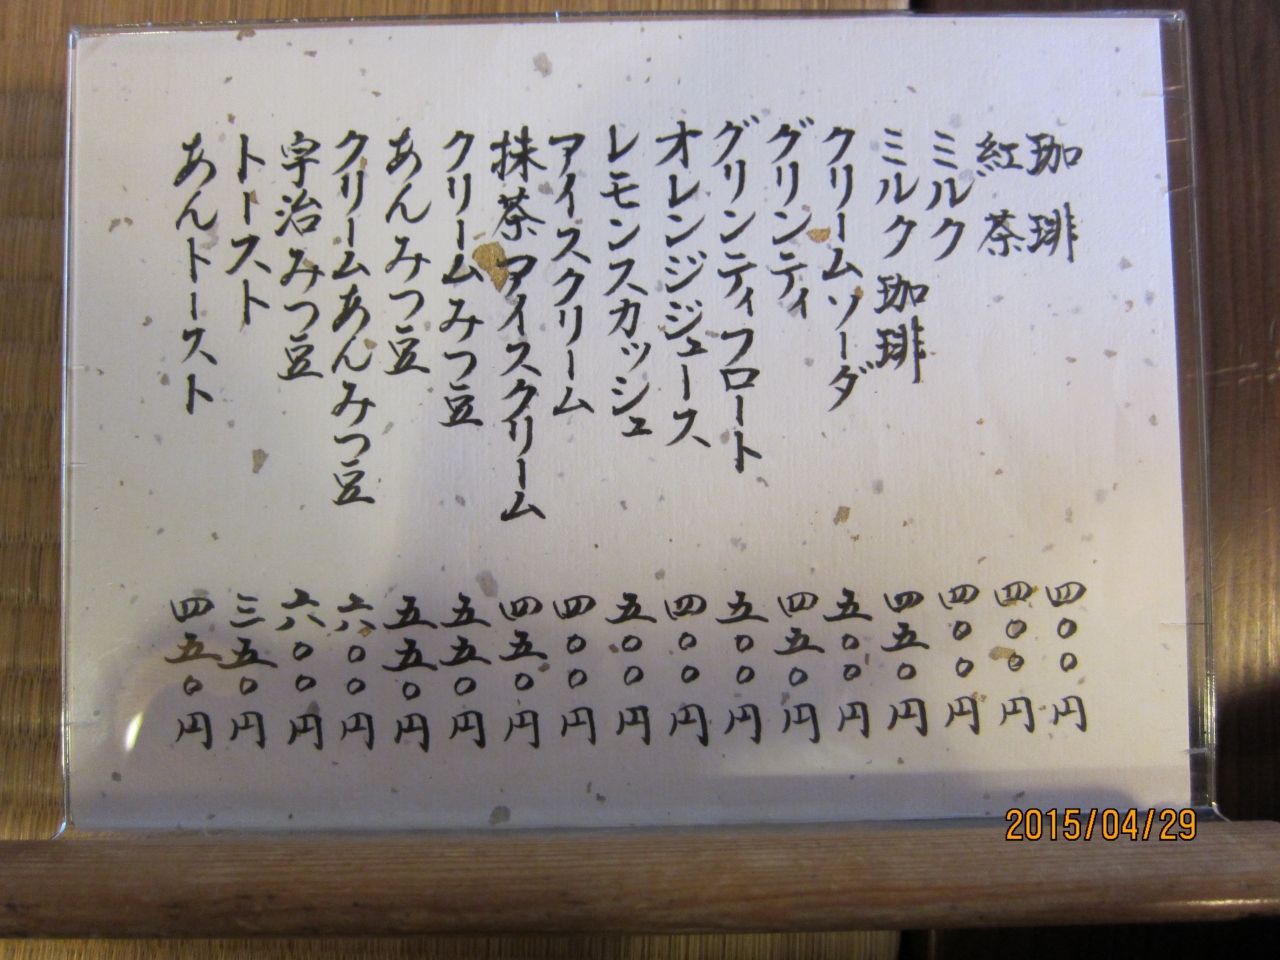 珈琲 四〇〇円
紅茶 四〇〇円
ミルク 四〇〇円
ミルク珈琲 四五〇円
クリームソーダ 五〇〇円
グリンティ 四五〇円
グリンティフロート 五〇〇円
オレンジジュース 四〇〇円
レモンスカッシュ 五〇〇円
アイスクリーム 四〇〇円
抹茶アイスクリーム 四五〇円
クリームみつ豆 五五〇円
あんみつ豆 五五〇円
クリームあんみつ豆 六〇〇円
宇治みつ豆 六〇〇円
トースト 三五〇円
あんトースト 四五〇円
2015/04/29